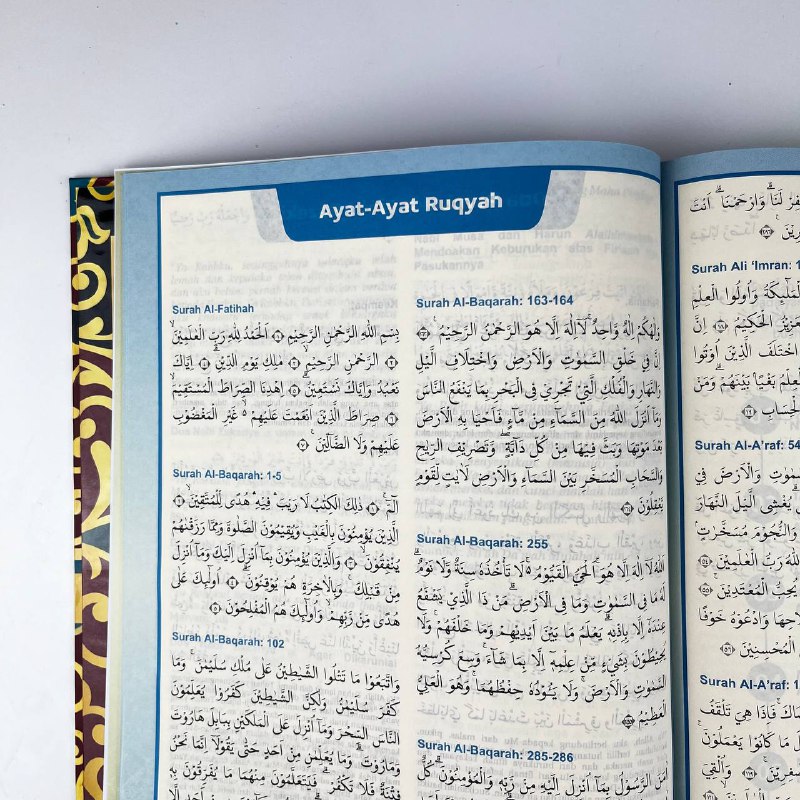 Ayat-Ayat Ruqyah
Surah Al-Fatihah
بِسْمِ اللّٰهِ الرَّحْمٰنِ الرَّحِيْمِ ۝١ اَلْحَمْدُ لِلّٰهِ رَبِّ الْعٰلَمِيْنَۙ
۝٢ الرَّحْمٰنِ الرَّحِيْمِۙ ۝٣ مٰلِكِ يَوْمِ الدِّيْنِۗ ۝٤ اِيَّاكَ
نَعْبُدُ وَاِيَّاكَ نَسْتَعِيْنُۗ ۝٥ اِهْدِنَا الصِّرَاطَ الْمُسْتَقِيْمَۙ
۝٦ صِرَاطَ الَّذِيْنَ اَنْعَمْتَ عَلَيْهِمْ ەۙ غَيْرِ الْمَغْضُوْبِ
عَلَيْهِمْ وَلَا الضَّاۤلِّيْنَ ۝٧
Surah Al-Baqarah: 1-5
الۤمّۤۚ ۝١ ذٰلِكَ الْكِتٰبُ لَا رَيْبَۛ فِيْهِۛ هُدًى لِّلْمُتَّقِيْنَۙ ۝٢
الَّذِيْنَ يُؤْمِنُوْنَ بِالْغَيْبِ وَيُقِيْمُوْنَ الصَّلٰوةَ وَمِمَّا رَزَقْنٰهُمْ
يُنْفِقُوْنَۙ ۝٣ وَالَّذِيْنَ يُؤْمِنُوْنَ بِمَآ اُنْزِلَ اِلَيْكَ وَمَآ اُنْزِلَ
مِنْ قَبْلِكَۚ وَبِالْاٰخِرَةِ هُمْ يُوْقِنُوْنَۗ ۝٤ اُولٰۤىِٕكَ عَلٰى
هُدًى مِّنْ رَّبِّهِمْۙ وَاُولٰۤىِٕكَ هُمُ الْمُفْلِحُوْنَ ۝٥
Surah Al-Baqarah: 102
وَاتَّبَعُوْا مَا تَتْلُوا الشَّيٰطِيْنُ عَلٰى مُلْكِ سُلَيْمٰنَۚ وَمَا
كَفَرَ سُلَيْمٰنُ وَلٰكِنَّ الشَّيٰطِيْنَ كَفَرُوْا يُعَلِّمُوْنَ
النَّاسَ السِّحْرَ وَمَآ اُنْزِلَ عَلَى الْمَلَكَيْنِ بِبَابِلَ هَارُوْتَ
وَمَارُوْتَۗ وَمَا يُعَلِّمٰنِ مِنْ اَحَدٍ حَتّٰى يَقُوْلَآ اِنَّمَا نَحْنُ
فِتْنَةٌ فَلَا تَكْفُرْۗ فَيَتَعَلَّمُوْنَ مِنْهُمَا مَا يُفَرِّقُوْنَ بِهٖ
Surah Al-Baqarah: 163-164
وَاِلٰهُكُمْ اِلٰهٌ وَّاحِدٌۚ لَآ اِلٰهَ اِلَّا هُوَ الرَّحْمٰنُ الرَّحِيْمُ ۝١٦٣
اِنَّ فِيْ خَلْقِ السَّمٰوٰتِ وَالْاَرْضِ وَاخْتِلَافِ الَّيْلِ
وَالنَّهَارِ وَالْفُلْكِ الَّتِيْ تَجْرِيْ فِى الْبَحْرِ بِمَا يَنْفَعُ النَّاسَ
وَمَآ اَنْزَلَ اللّٰهُ مِنَ السَّمَاۤءِ مِنْ مَّاۤءٍ فَاَحْيَا بِهِ الْاَرْضَ
بَعْدَ مَوْتِهَا وَبَثَّ فِيْهَا مِنْ كُلِّ دَاۤبَّةٍۖ وَّتَصْرِيْفِ الرِّيٰحِ
وَالسَّحَابِ الْمُسَخَّرِ بَيْنَ السَّمَاۤءِ وَالْاَرْضِ لَاٰيٰتٍ لِّقَوْمٍ
يَّعْقِلُوْنَ ۝١٦٤
Surah Al-Baqarah: 255
اَللّٰهُ لَآ اِلٰهَ اِلَّا هُوَۚ الْحَيُّ الْقَيُّوْمُ ەۚ لَا تَأْخُذُهٗ سِنَةٌ وَّلَا نَوْمٌۗ
لَهٗ مَا فِى السَّمٰوٰتِ وَمَا فِى الْاَرْضِۗ مَنْ ذَا الَّذِيْ يَشْفَعُ
عِنْدَهٗٓ اِلَّا بِاِذْنِهٖۗ يَعْلَمُ مَا بَيْنَ اَيْدِيْهِمْ وَمَا خَلْفَهُمْۚ وَلَا
يُحِيْطُوْنَ بِشَيْءٍ مِّنْ عِلْمِهٖٓ اِلَّا بِمَا شَاۤءَۚ وَسِعَ كُرْسِيُّهُ
السَّمٰوٰتِ وَالْاَرْضَۚ وَلَا يَـُٔوْدُهٗ حِفْظُهُمَاۚ وَهُوَ الْعَلِيُّ
الْعَظِيْمُ ۝٢٥٥
Surah Al-Baqarah: 285-286
اٰمَنَ الرَّسُوْلُ بِمَآ اُنْزِلَ اِلَيْهِ مِنْ رَّبِّهٖ وَالْمُؤْمِنُوْنَۗ كُلٌّ
وَارْحَمْنَاۗ اَنْتَ
Surah Ali 'Imran: 1
وَالْمَلٰۤىِٕكَةُ وَاُولُوا الْعِلْمِ
الْحَكِيْمُۗ ۝١٨ اِنَّ
اخْتَلَفَ الَّذِيْنَ اُوْتُوا
الْعِلْمُ بَغْيًاۢ بَيْنَهُمْۗ وَمَنْ
الْحِسَابِ ۝١٩
Surah Al-A'raf: 54
السَّمٰوٰتِ وَالْاَرْضَ فِيْ
يُغْشِى الَّيْلَ النَّهَارَ
وَالنُّجُوْمَ مُسَخَّرٰتٍۢ
اللّٰهُ رَبُّ الْعٰلَمِيْنَ ۝٥٤
يُحِبُّ الْمُعْتَدِيْنَۚ ۝٥٥
وَادْعُوْهُ خَوْفًا
الْمُحْسِنِيْنَ ۝٥٦
Surah Al-A'raf: 1
فَاِذَا هِيَ تَلْقَفُ
مَا كَانُوْا يَعْمَلُوْنَۚ
وَاُلْقِيَ